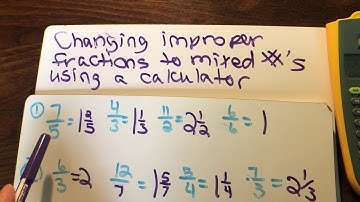 Changing improper
fractions to mixed #'s
using a calculator
① 7/5 = 1 2/5 4/3 = 1 1/3 11/2 = 2 1/2 6/6 = 1
6/3 = 2 12/7 = 1 5/7 5/4 = 1 1/4 7/3 = 2 1/3